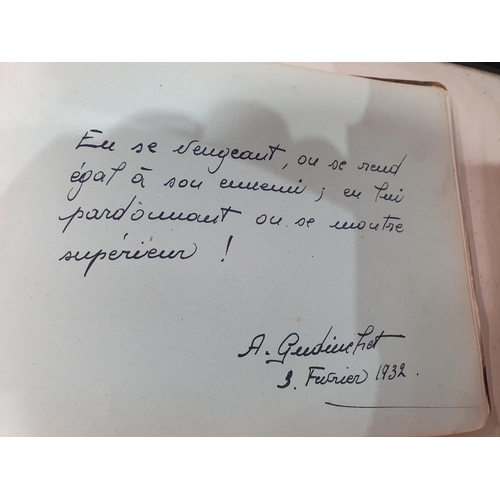 En se vengeant, on se rend
égal à son ennemi; en lui
pardonnant on se montre
supérieur !
A. Gudinchet
3. Février 1932.